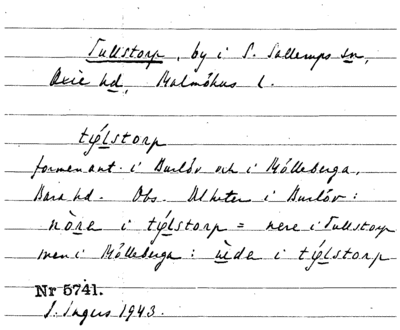 Tullstorp, by i S. Sallerups sn,
Oxie hd, Malmöhus l.
týlstorp
formen ant. i Burlöv och i Mölleberga,
Bara hd. Obs. Ulheter i Burlöv:
nòre i týlstorp = nere i Tullstorp
men i Mölleberga: ùde i týlstorp
Nr 5741.
S. Ingers 1943.